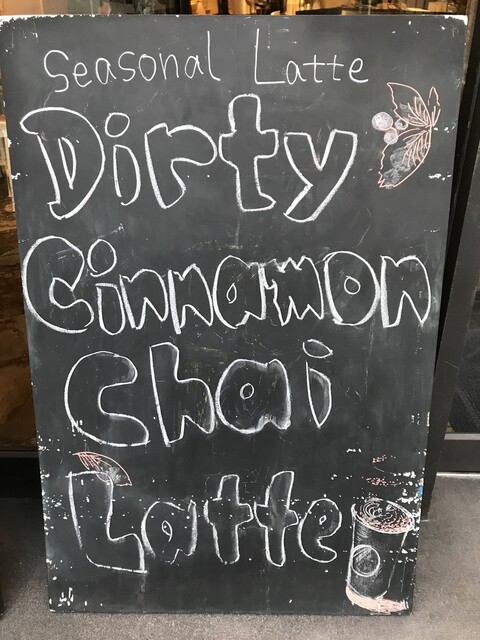 Seasonal Latte
Dirty
Cinnamon
Chai
Latte